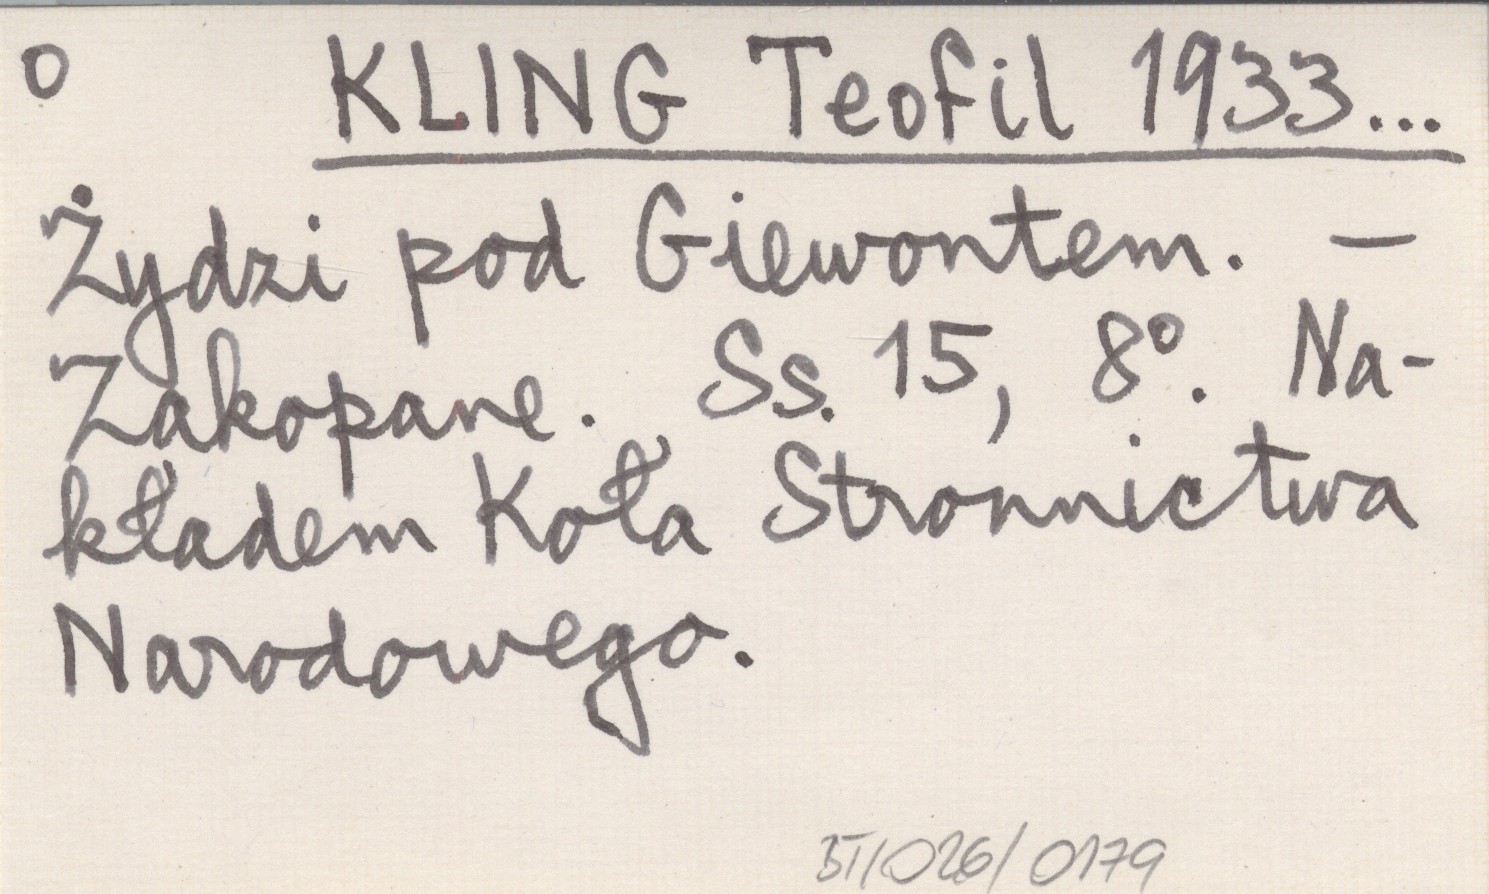 o KLING Teofil 1933...
Żydzi pod Giewontem. —
Zakopane. Ss. 15, 8°. Na-
kładem Koła Stronnictwa
Narodowego.
BT/026/0179